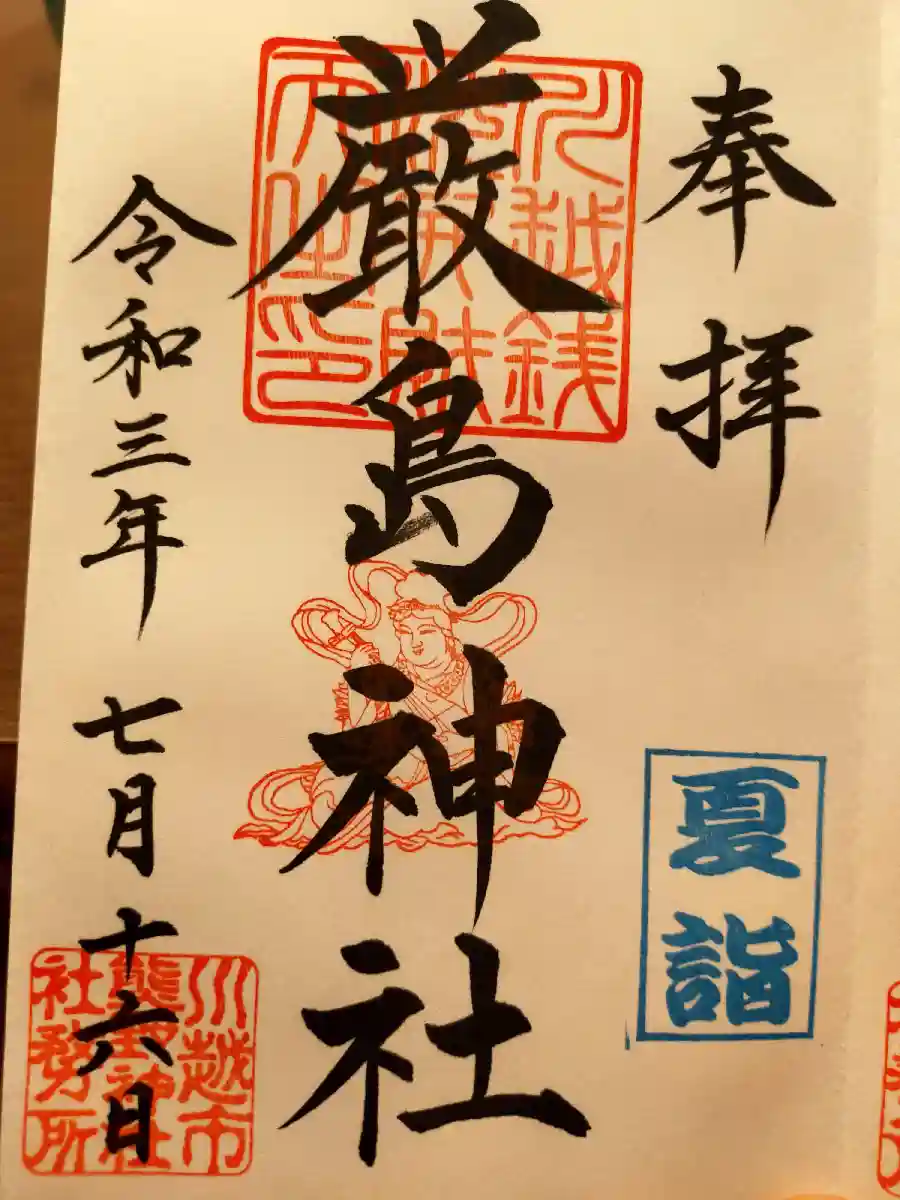 奉拝
夏詣
厳島神社
川越銭
令和三年七月十六日
川越市
熊野神社
社務所